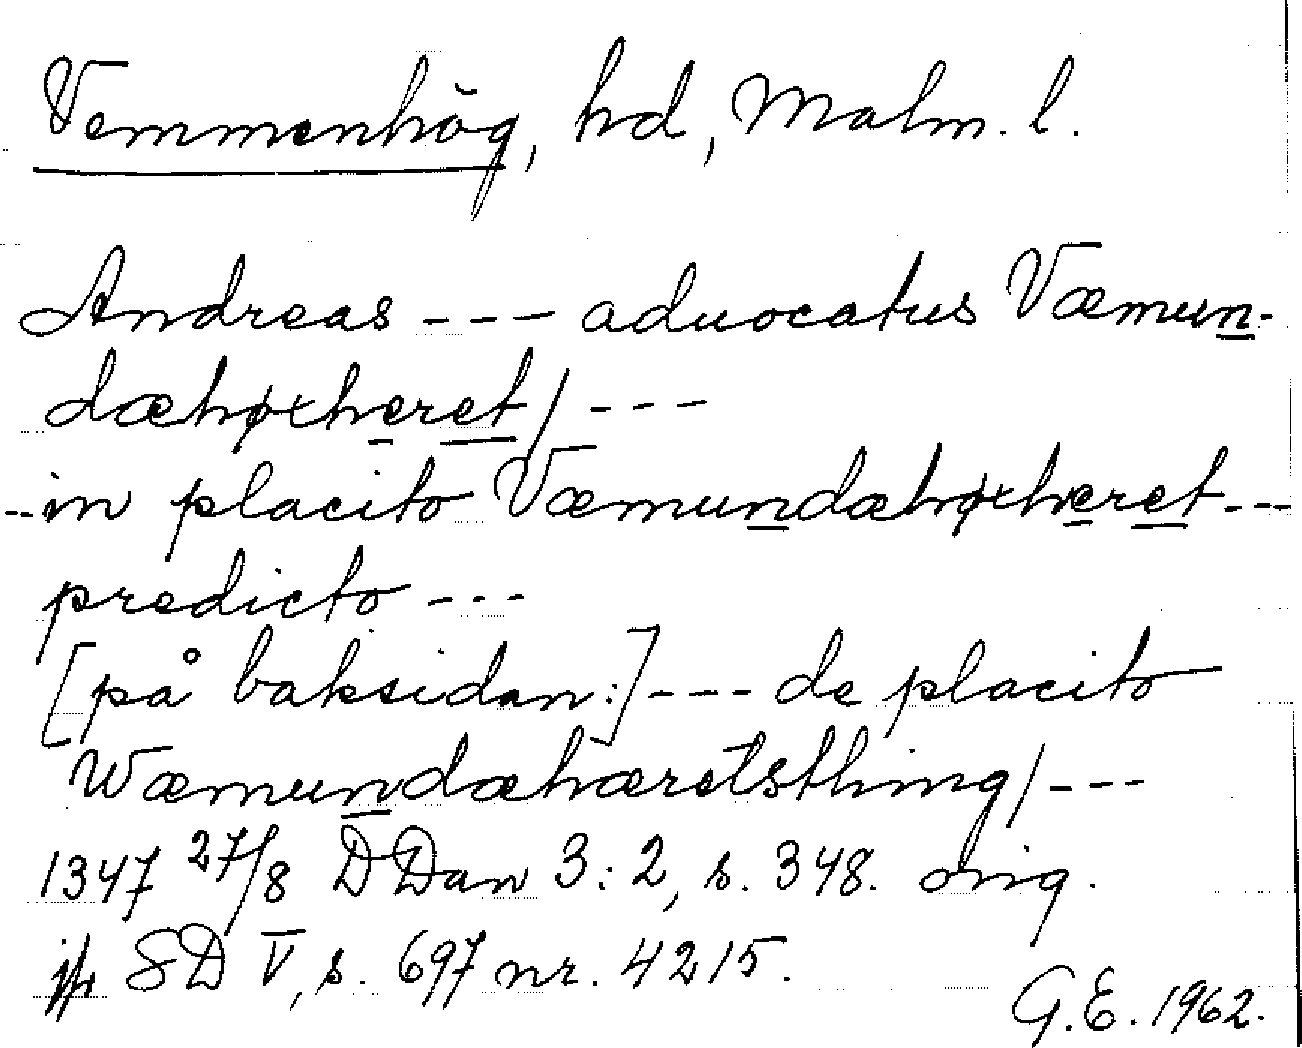 Vemmenhög, hd, Malm. l.
Andreas --- aduocatus Væmun-
dæhøxheret/ ---
--in placito Væmundæhøxheret---
predicto ---
[på baksidan:]--- de placito
Wæmundæhæretsthing/ ---
1347 27/8 DDan 3:2, s. 348. orig.
jfr SD V, s. 697 nr. 4215.
G.E. 1962.